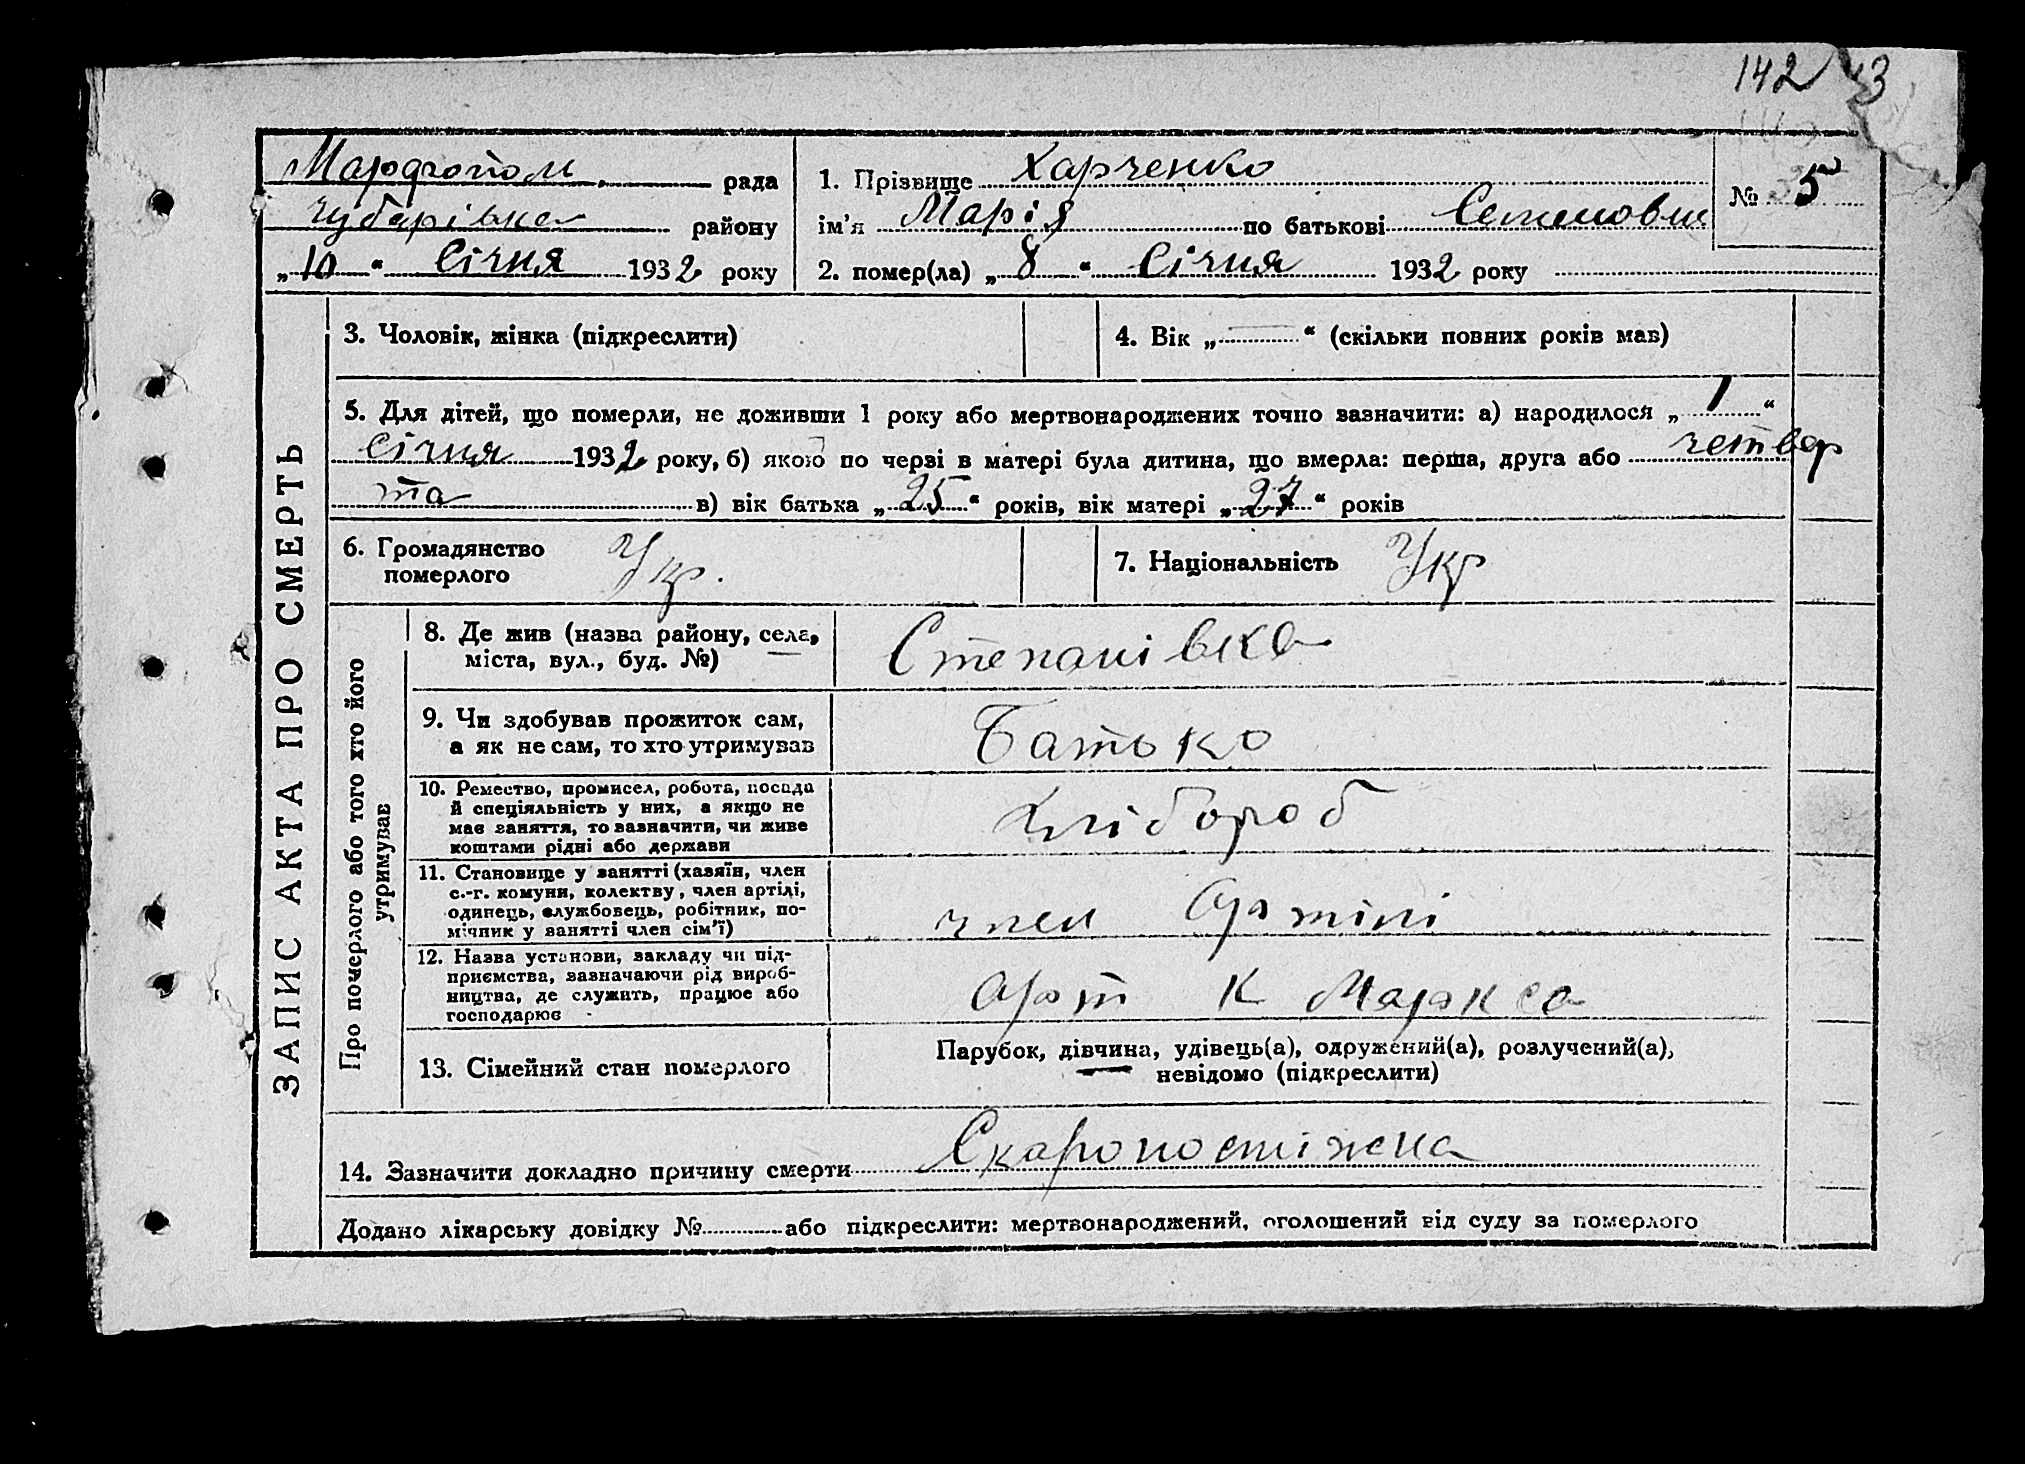 142 43
Марфопол. рада
Чубарівка району
„10“ Січня 1932 року
1. Прізвище Харченко
ім'я Марія по батькові Семеновна
2. помер(ла) „8“ Січня 1932 року
№ 5
ЗАПИС АКТА ПРО СМЕРТЬ
3. Чоловік, жінка (підкреслити)
4. Вік „—“ (скільки повних років мав)
5. Для дітей, що померли, не доживши 1 року або мертвонароджених точно зазначити: а) народилося „1“
Січня 1932 року, б) якою по черзі в матері була дитина, що вмерла: перша, друга або четвер
та в) вік батька „25“ років, вік матері „27“ років
6. Громадянство
померлого Укр.
7. Національність Укр
Про померлого або того хто його
утримував
8. Де жив (назва району, села,
міста, вул., буд. №)
Степанівка
9. Чи здобував прожиток сам,
а як не сам, то хто утримував
Батько
10. Ремество, промисел, робота, посада
й спеціяльність у них, а якщо не
має заняття, то зазначити, чи живе
коштами рідні або держави
Хлібороб
11. Становище у занятті (хазяїн, член
с.-г. комуни, колектву, член артілі,
одинець, службовець, робітник, по-
мічник у занятті член сім'ї)
член Артілі
12. Назва установи, закладу чи під-
приємства, зазначаючи рід вироб-
ництва, де служить, працює або
господарює
Арт К Маркса
13. Сімейний стан померлого
Парубок, дівчина, удівець(а), одружений(а), розлучений(а),
невідомо (підкреслити)
14. Зазначити докладно причину смерти Скоропостіжена
Додано лікарську довідку № або підкреслити: мертвонароджений, оголошений від суду за померлого